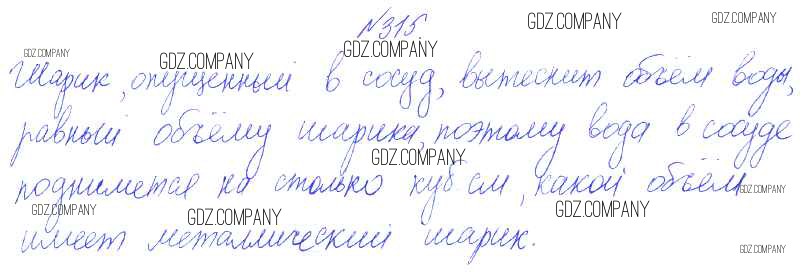 №315
Шарик, опущенный в сосуд, вытеснит объём воды,
равный объёму шарика, поэтому вода в сосуде
поднимется на столько куб см, какой объём
имеет металлический шарик.
GDZ.COMPANY
GDZ.COMPANY
GDZ.COMPANY
GDZ.COMPANY
GDZ.COMPANY
GDZ.COMPANY
GDZ.COMPANY
GDZ.COMPANY
GDZ.COMPANY
GDZ.COMPANY
GDZ.COMPANY